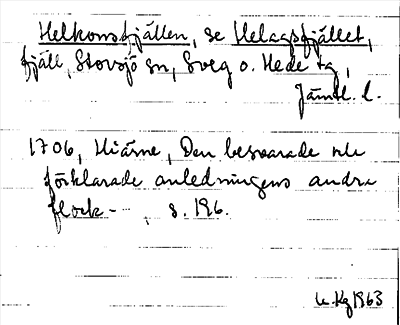 Helkomsfjällen, se Helagsfjället,
fjäll, Storsjö sn, Sveg o. Hede tg,
Jämtl. l.
1706, Hiärne, Den besvarade och
förklarade anledningens andra
flock - , s. 196.
1963